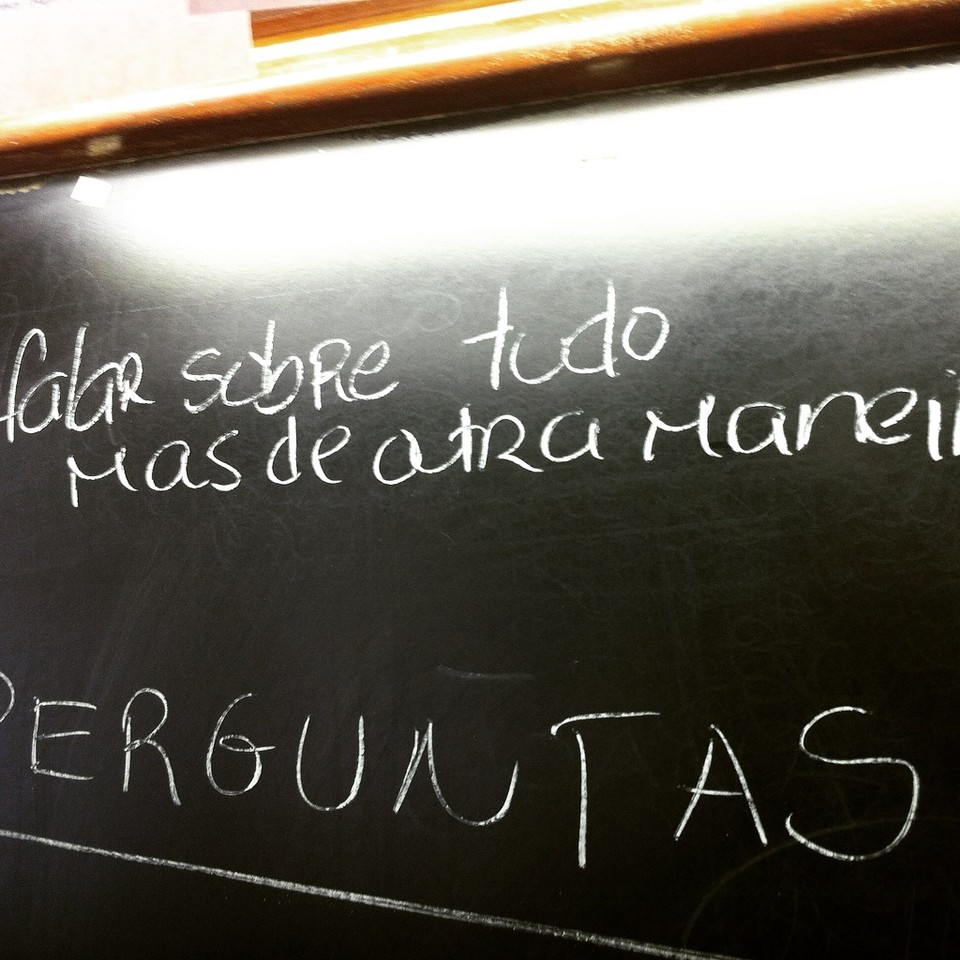 falar sobre tudo
mas de outra maneir
PERGUNTAS